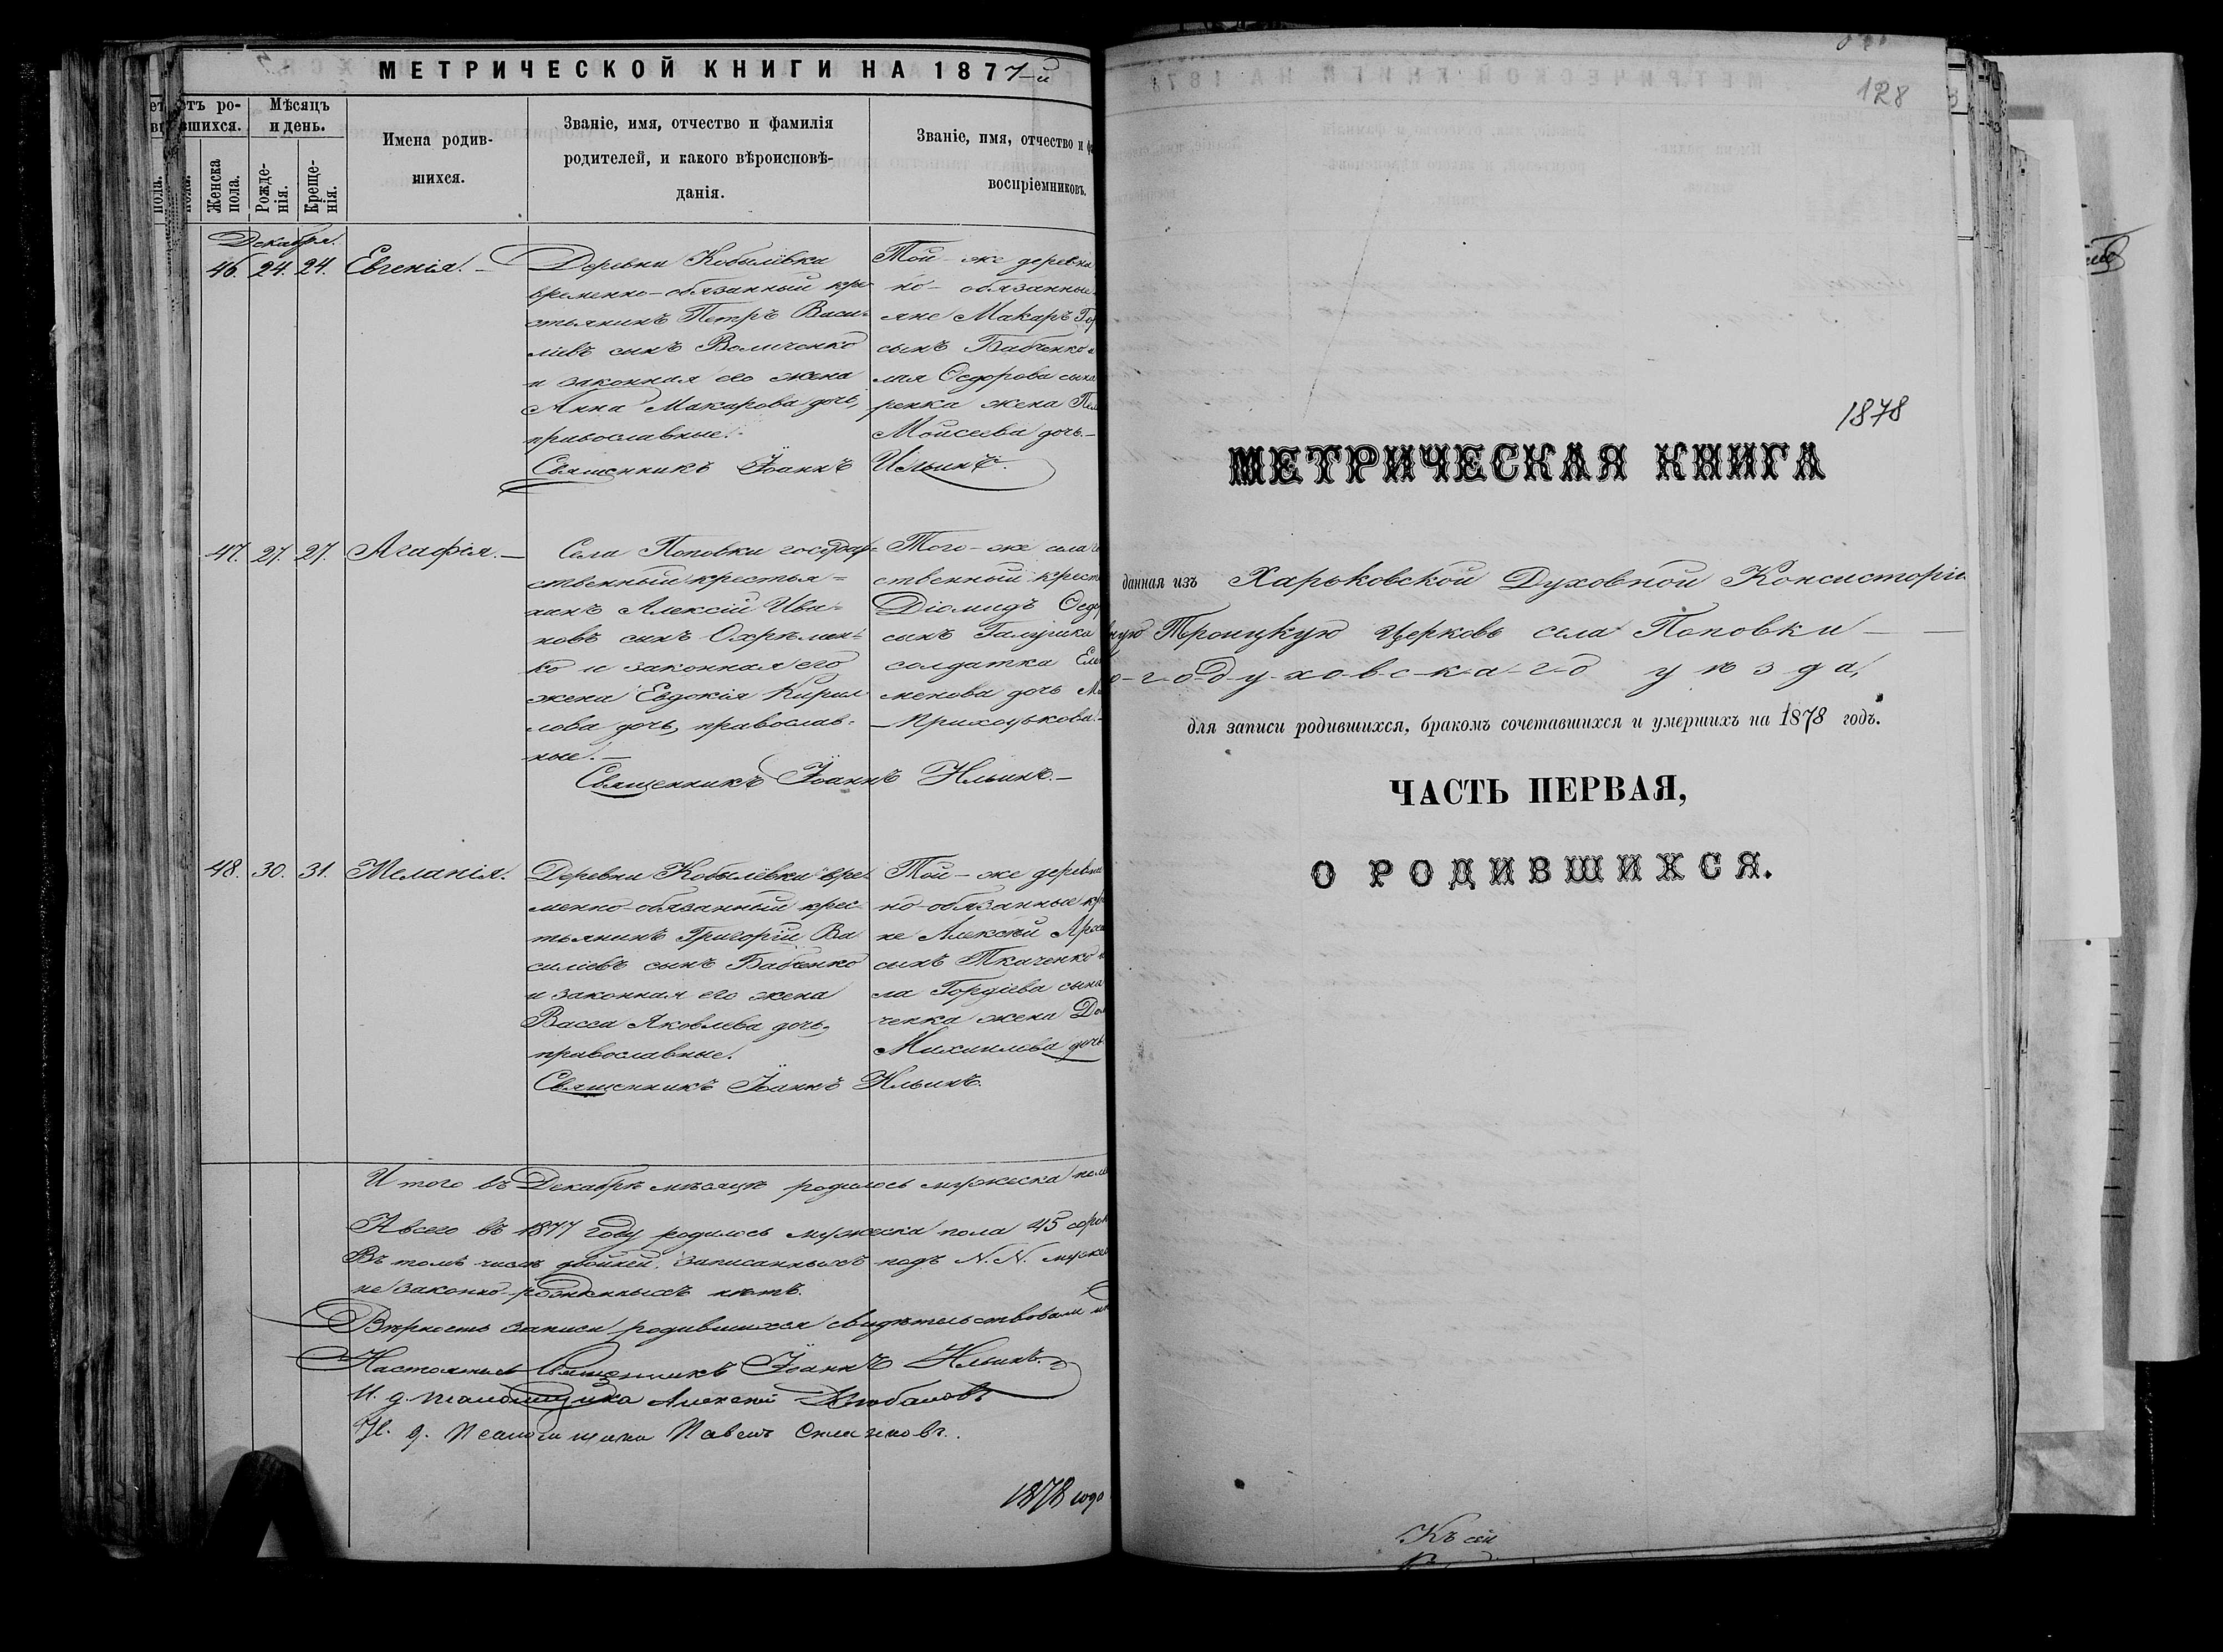 МЕТРИЧЕСКОЙ КНИГИ НА 1877-й
Мѣсяцъ и день.
Женска пола.
Рожденія.
Крещенія.
Имена родив-
шихся.
Званіе, имя, отчество и фамилія
родителей, и какого вѣроисповѣ-
данія.
Званіе, имя, отчество и
воспріемниковъ.
Декабря.
46. 24. 24. Евгенія.
Деревни Кобылёвки
временно-обязанный кре-
стьянинъ Петръ Васи-
ліевъ сынъ Величенко
и законная его жена
Анна Макарова дочь,
православные.
Той-же деревни
но-обязанные
яне Макаръ
сынъ Бабченко
Ѳедорова сына
ренка жена
Моисеева дочь.
Священникъ Іоаннъ Ильинъ.
47. 27. 27. Агафія.
Села Поповки государ-
ственный крестья-
нинъ Алексій Ива-
новъ сынъ Охримен-
ко и законная его
жена Евдокія Кирил-
лова дочь, православ-
ные.
Того-же села
ственный
Діомидъ
сынъ Галушка
солдатка
менова дочь
Приходькова.
Священникъ Іоаннъ Ильинъ.
48. 30. 31. Меланія.
Деревни Кобылёвки вре-
менно-обязанный крес-
тьянинъ Григорій Ва
силіевъ сынъ Бабченко
и законная его жена
Васса Яковлева дочь,
православные.
Той-же деревни
но-обязанные
не Алексѣй
сынъ Ткаченко
ла Гордіева сына
ченка жена
Михаилова дочь
Священникъ Іоаннъ Ильинъ.
Итого въ Декабрѣ мѣсяцѣ родилось мужеска пола
А всего въ 1877 году родилось мужеска пола 45
Въ томъ числѣ двойней, записанныхъ подъ N.N.
незаконно-рожденныхъ нѣтъ.
Вѣрность записи родившихся свидѣтельствовали
Настоятель Священникъ Іоаннъ Ильинъ.
И. д. Псаломщика Алексѣй
И. д. Псаломщика Павелъ
1878 года
128
1878
МЕТРИЧЕСКАЯ КНИГА
данная изъ Харьковской Духовной Консисторіи
Троицкую церковь села Поповки
о-г-о-д-у-х-о-в-с-к-а-г-о уѣзда,
для записи родившихся, бракомъ сочетавшихся и умершихъ на 1878 годъ.
ЧАСТЬ ПЕРВАЯ,
О РОДИВШИХСЯ.
Къ сей